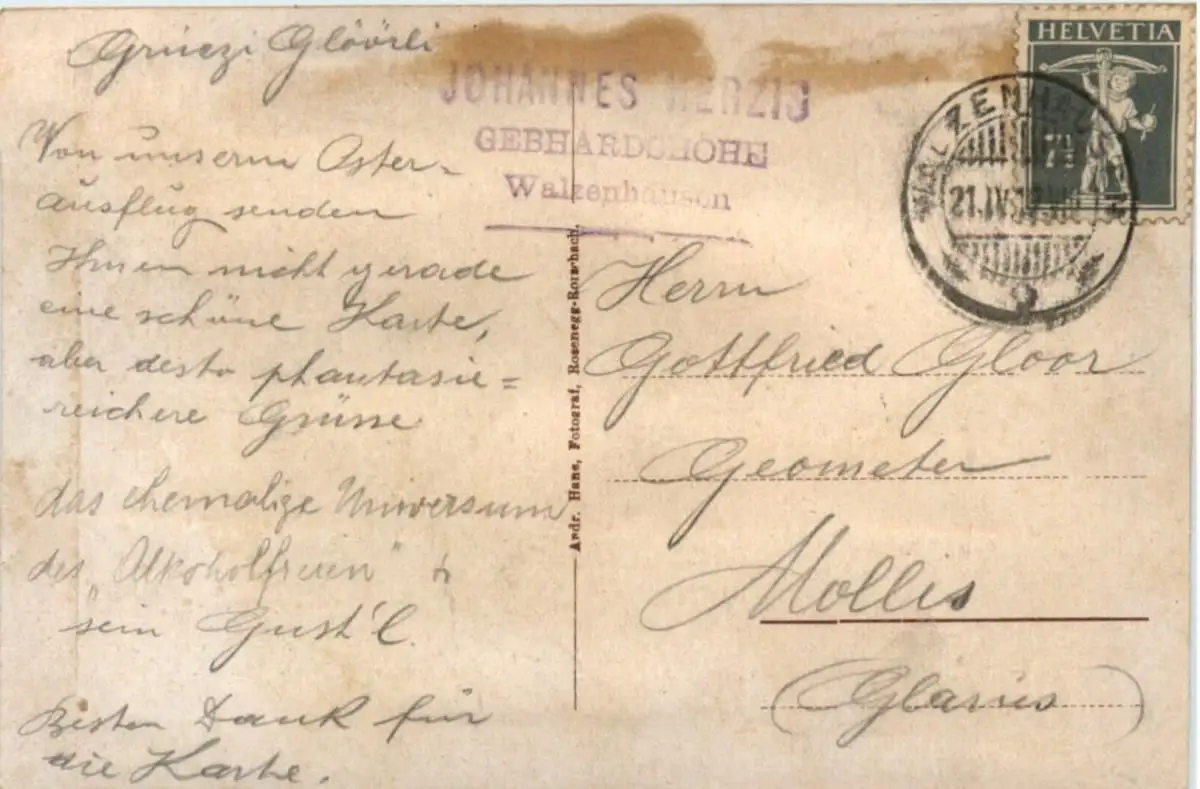 Grüezi Glöörli
Von unserm Oster-
ausflug senden
Ihnen nicht gerade
eine schöne Karte,
aber desto phantasie=
reichere Grüsse
das ehemalige Universum
des „Alkoholfreien"
sein Gust'l.
Besten Dank für
die Karte.
JOHANNES HERZIG
GEBHARDSHÖHE
Walzenhausen
Andr. Hane, Fotograf, Rosenegg-Rorschach.
HELVETIA
7½
WALZENHAUSEN
21.IV.
Herrn
Gottfried Gloor
Geometer
Mollis
(Glarus)